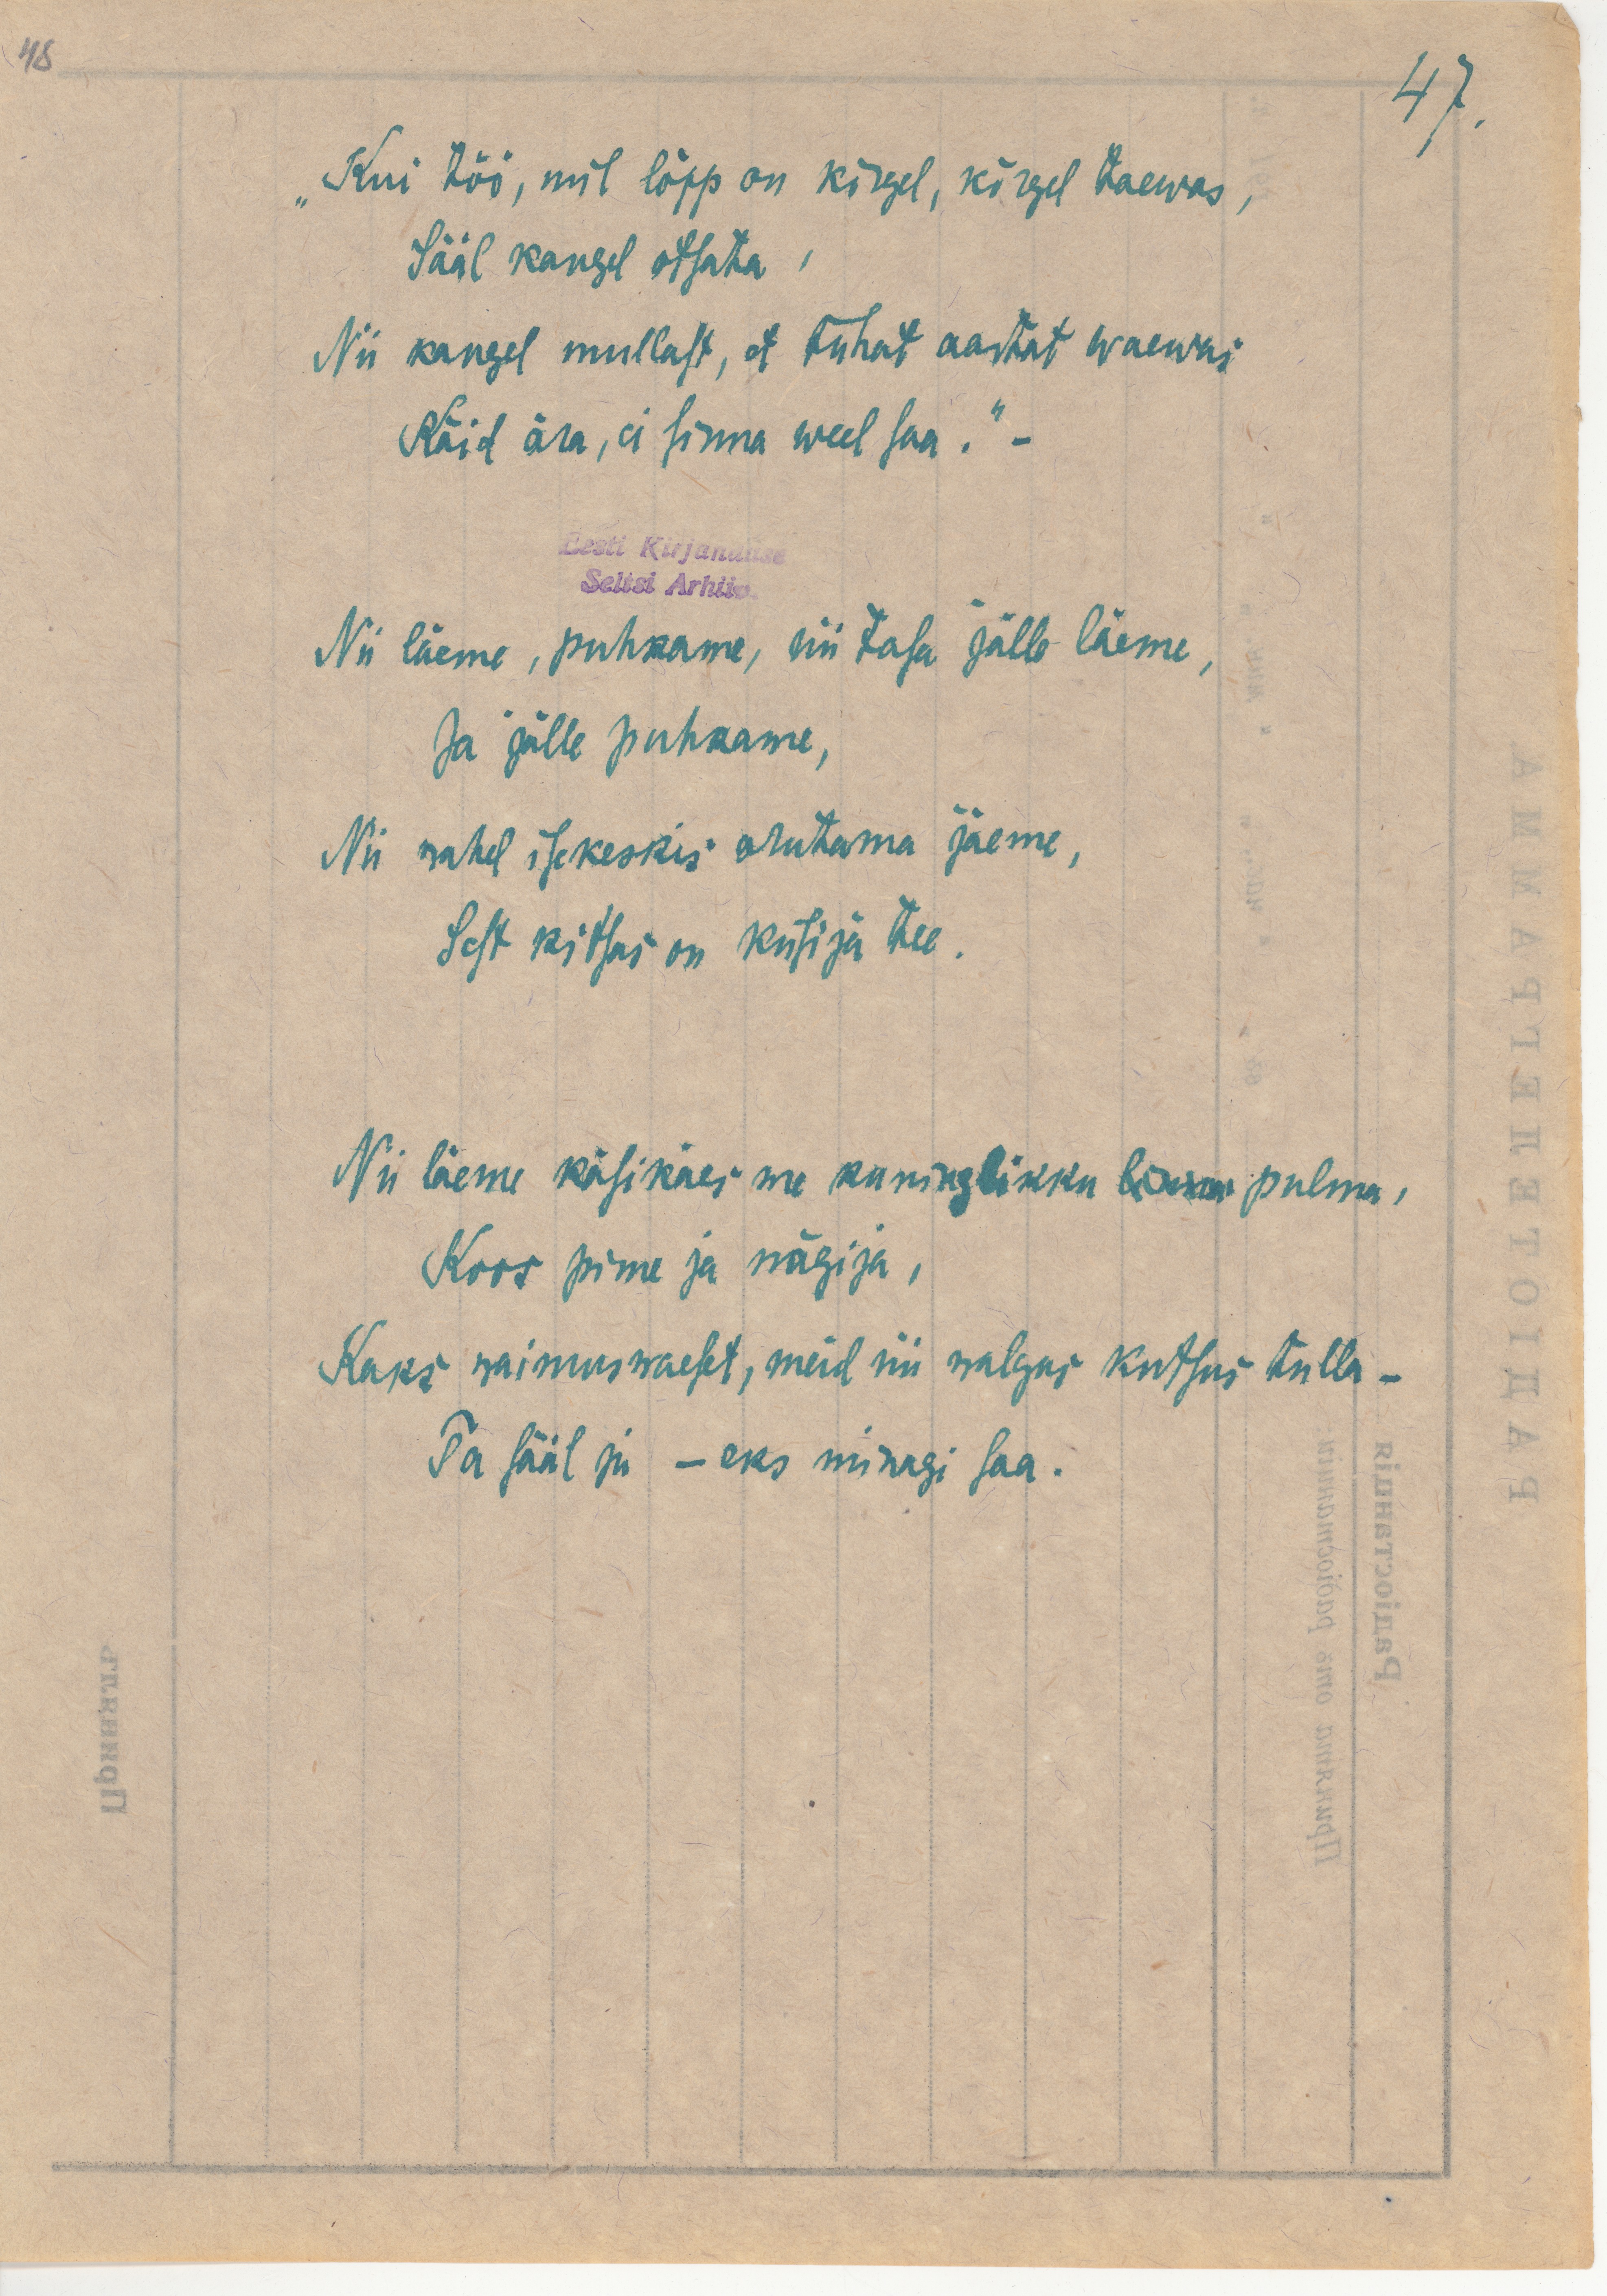 48
47.
„Kui töö, mil lõpp on kõrgel, kõrgel taewas,
Sääl kaugel otsata,
Nii kaugel mullast, et tuhat aastat waewas
Käid ära, ei sinna weel saa." –
Eesti Kirjanduse
Seltsi Arhiiv.
Nii läeme, puhkame, nii tasa jälle läeme,
Ja jälle puhkame,
Nii wahel isekeskis arutama jäeme,
Sest kitsas on küsija tee.
Nii läeme käsikäes me kuninglikku pulma,
Koos pime ja nägija,
Kaks waimuswaest, meid nii walgus kutsus tulla –
Ta sääl ju – eks minagi saa.
РАДІОТЕЛЕГРАММА
Радіостанція
Принята отъ радіостанціи:
Принялъ